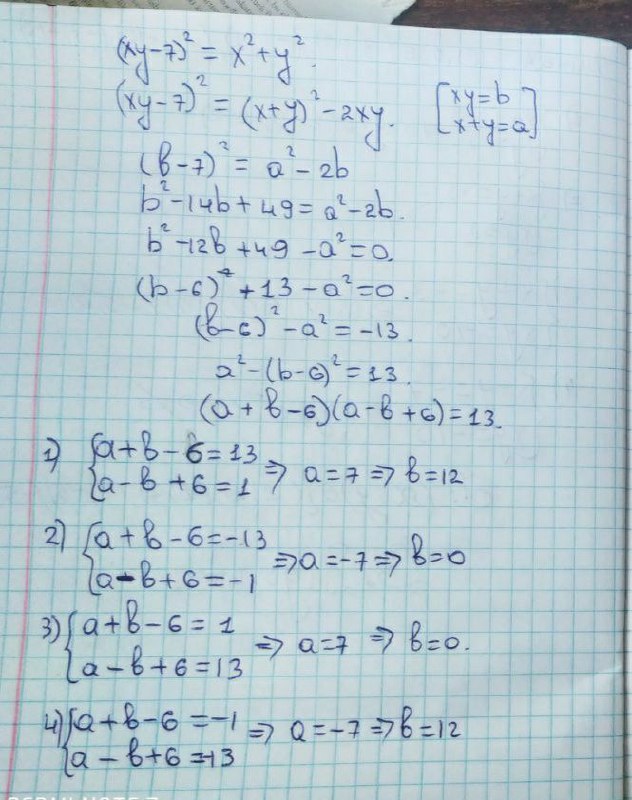 (xy-7)² = x²+y².
(xy-7)² = (x+y)²-2xy. [xy=b
x+y=a]
(b-7)² = a²-2b
b²-14b+49=a²-2b.
b²-12b+49-a²=0.
(b-6)²+13-a²=0.
(b-6)²-a²=-13.
a²-(b-6)²=13.
(a+b-6)(a-b+6)=13.
1) {a+b-6=13
a-b+6=1 ⇒ a=7 ⇒ b=12
2) {a+b-6=-13
a-b+6=-1 ⇒ a=-7 ⇒ b=0
3) {a+b-6=1
a-b+6=13 ⇒ a=7 ⇒ b=0.
4) {a+b-6=-1
a-b+6=-13 ⇒ a=-7 ⇒ b=12